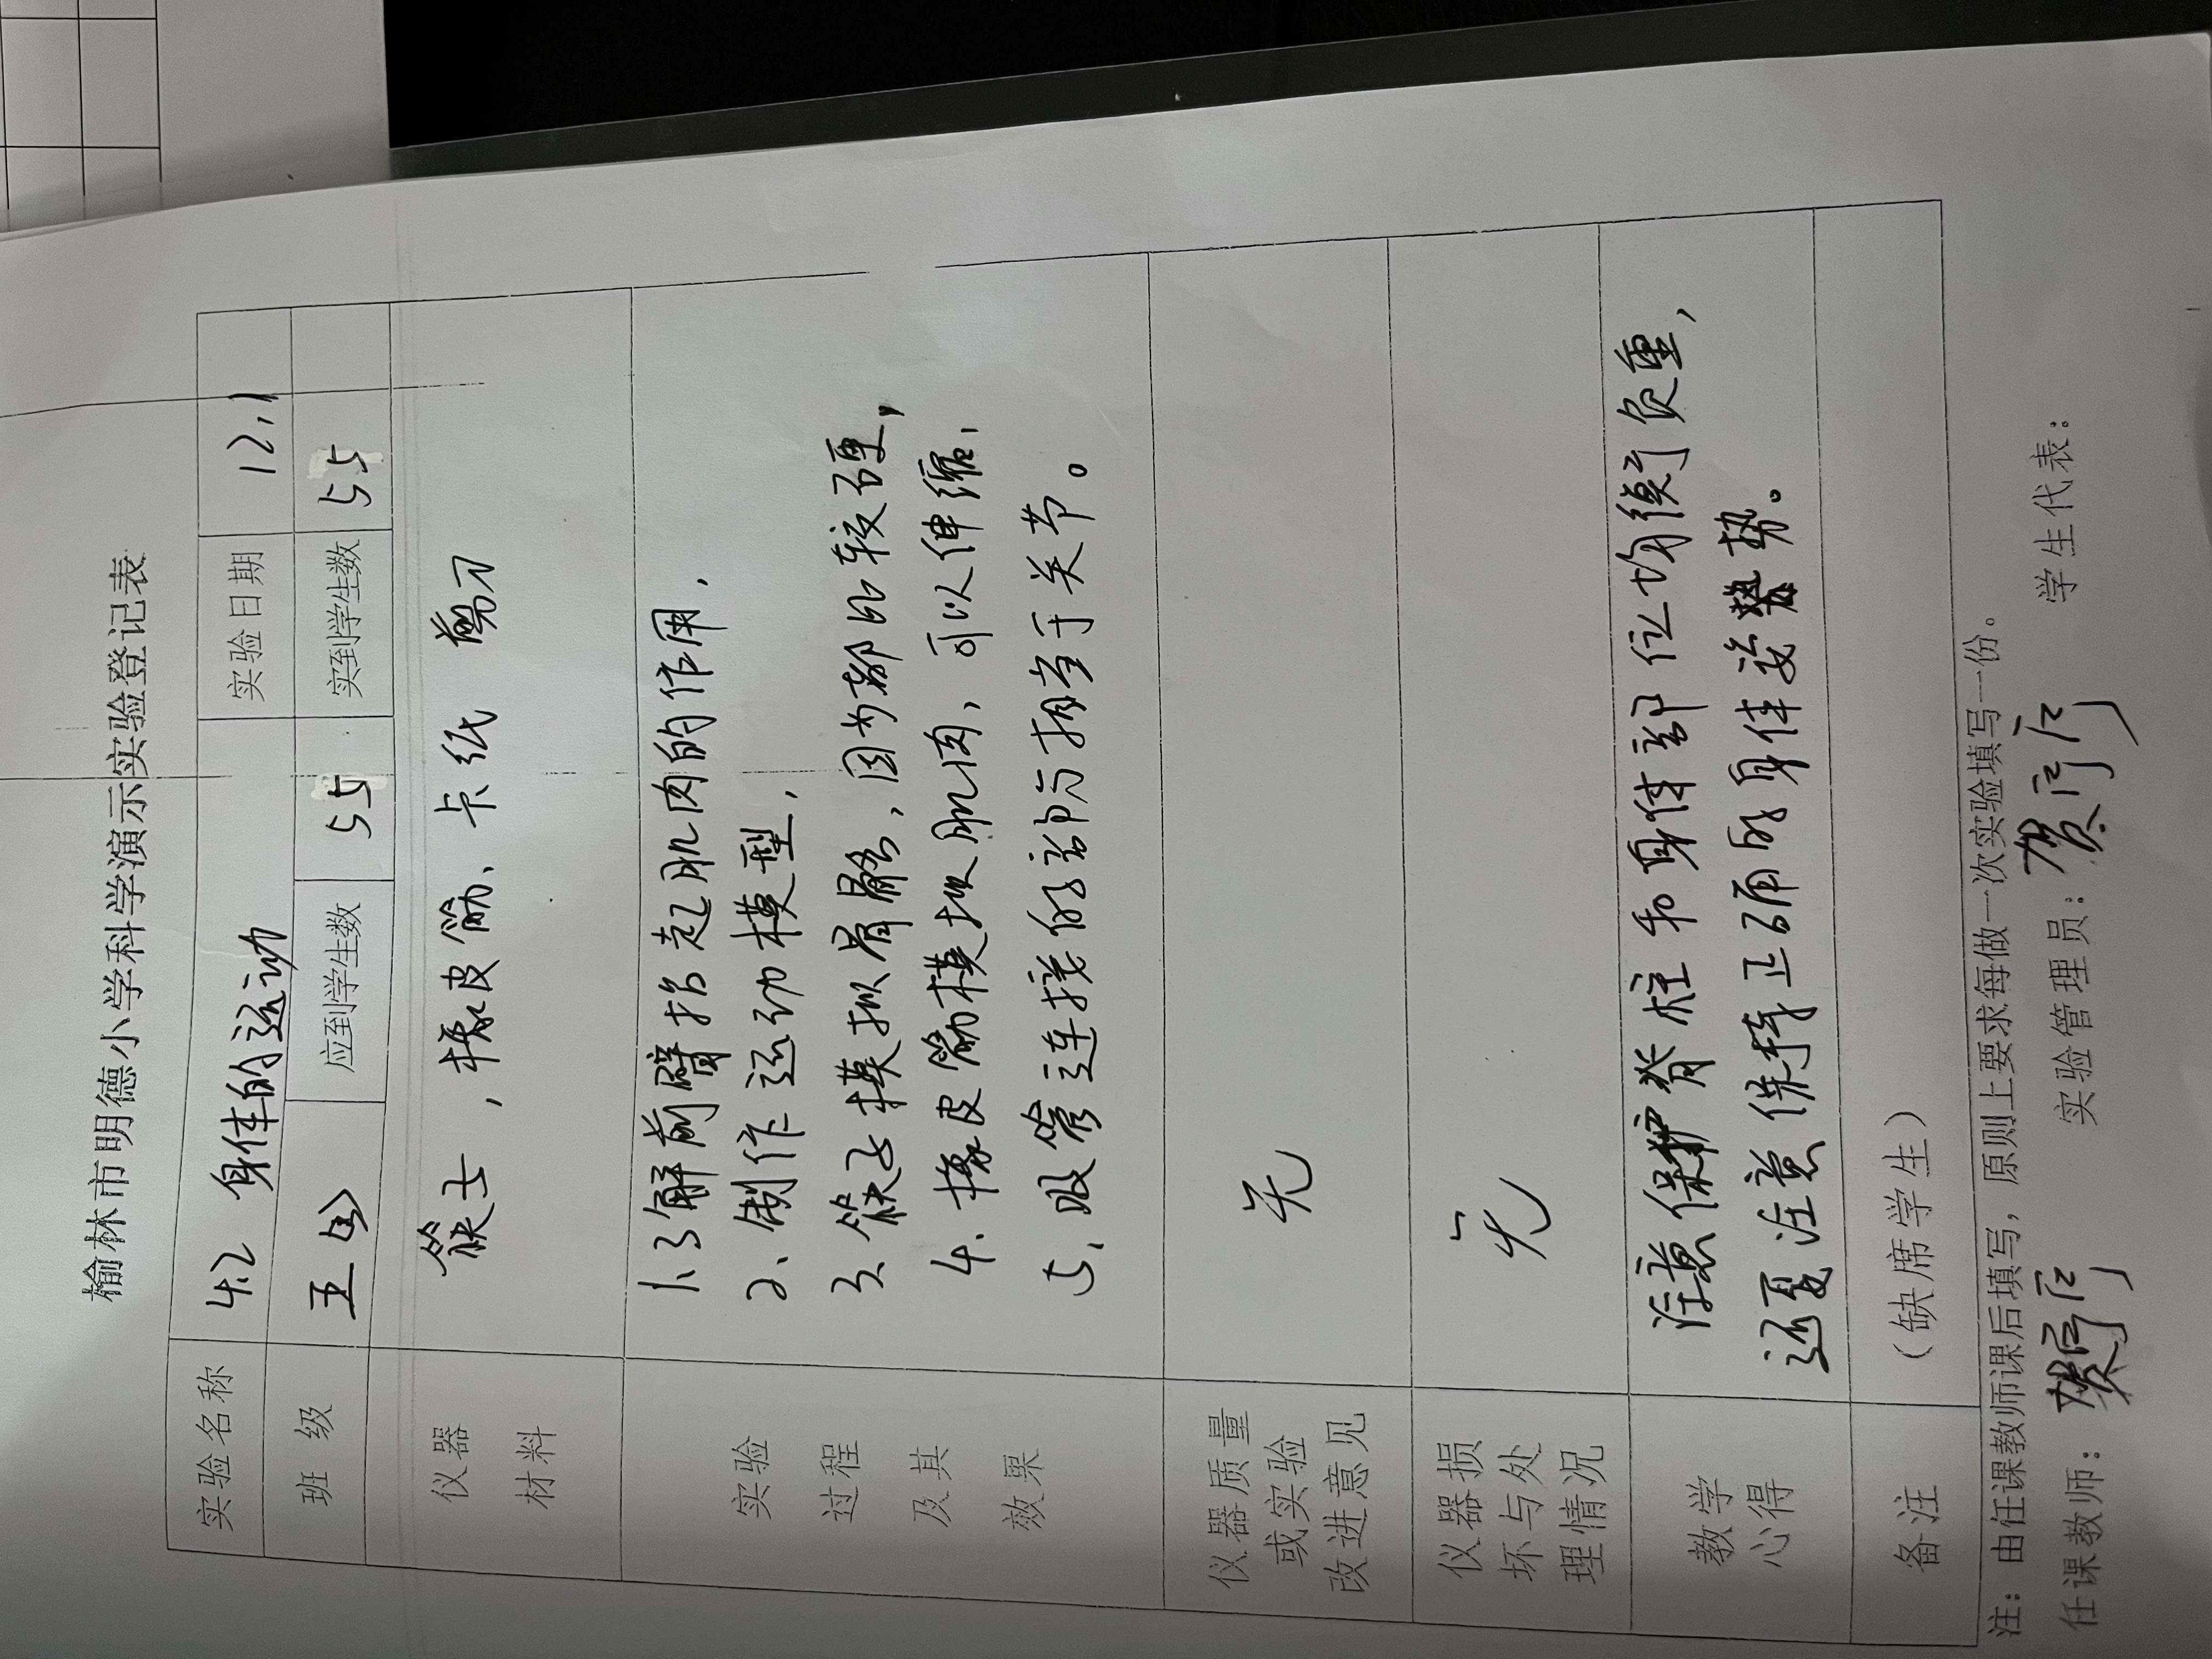 榆林市明德小学科学演示实验登记表
实验名称 4.2 身体的运动 实验日期 12.1
班级 五(4) 应到学生数 55 实到学生数 55
仪器材料 筷子,橡皮筋、卡纸 剪刀
实验过程及其效果
1.了解前臂抬起肌肉的作用.
2、制作运动模型.
3.筷子模拟骨骼,因为都比较硬,
4.橡皮筋模拟肌肉,可以伸缩.
5、吸管连接的部分相当于关节。
仪器质量或实验改进意见 无
仪器损坏与处理情况 无
教学心得
注意保护脊柱和身体部位均衡负重,
还要注意保持正确的身体姿势。
备注 (缺席学生)
注:由任课教师课后填写,原则上要求每做一次实验填写一份。
任课教师: 实验管理员: 学生代表: